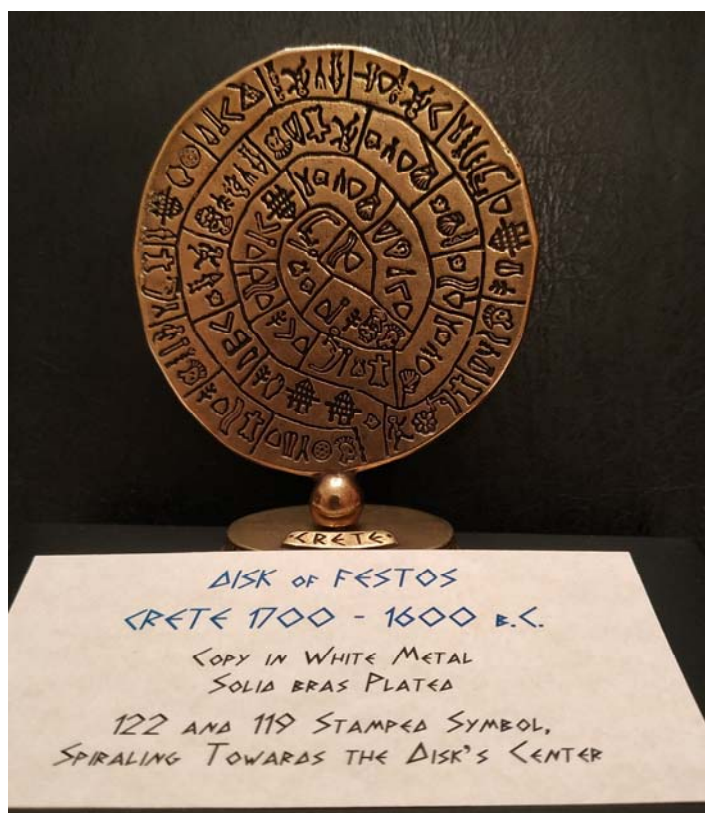 CRETE
DISK OF FESTOS
CRETE 1700 - 1600 B.C.
COPY IN WHITE METAL
SOLID BRAS PLATED
122 AND 119 STAMPED SYMBOL,
SPIRALING TOWARDS THE DISK'S CENTER